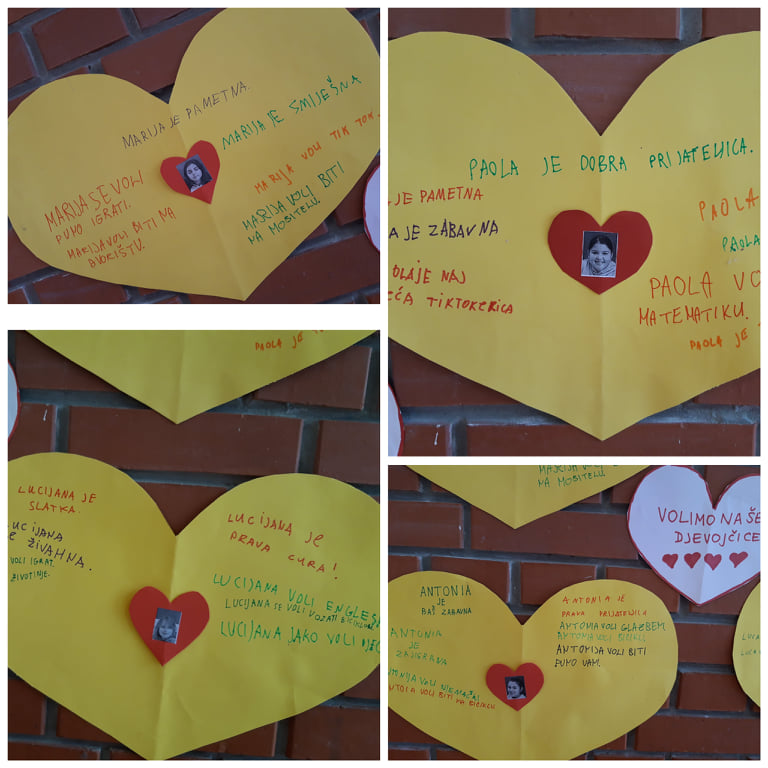 MARIJA JE PAMETNA.
MARIJA JE SMIJEŠNA
MARIJA SE VOLI
PUNO IGRATI.
MARIJA VOLI BITI NA
DVORIŠTU.
MARIJA VOLI TIK TOK.
MARIJA VOLI BITI
NA MOBITELU.
PAOLA JE DOBRA PRIJATELJICA.
JE PAMETNA
A JE ZABAVNA
OLA JE NAJ
EĆA TIKTOKERICA
PAOLA
PAOLA
PAOLA VO
MATEMATIKU.
PAOLA JE
PAOLA JE
LUCIJANA JE
SLATKA.
UCIJANA
E ŽIVAHNA.
VOLI IGRAT
ŽIVOTINJE.
LUCIJANA JE
PRAVA CURA!
LUCIJANA VOLI ENGLES
LUCIJANA SE VOLI VOZATI
LUCIJANA JAKO VOLI
MARIJA VOLI
NA MOBITELU.
VOLIMO NAŠE
DJEVOJČICE
ANTONIA
JE
BAŠ ZABAVNA
ANTONIA
JE
ZAIGRANA
VOLI
VOLI BITI NA BICIKLU
ANTONIA JE
PRAVA
ANTONIA VOLI GLAZBEM
ANTONIA VOLI BICIKLI
ANTONIJA VOLI BITI
PUNO VANI.
LUCI
LUCA